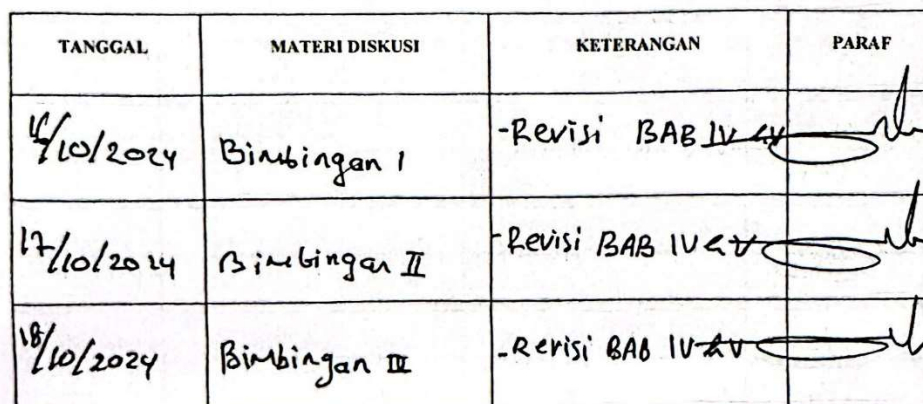 TANGGAL MATERI DISKUSI KETERANGAN PARAF
/10/2024 Bimbingan I -Revisi BAB IV & V
17/10/2024 Bimbingan II -Revisi BAB IV & V
18/10/2024 Bimbingan III -Revisi BAB IV & V